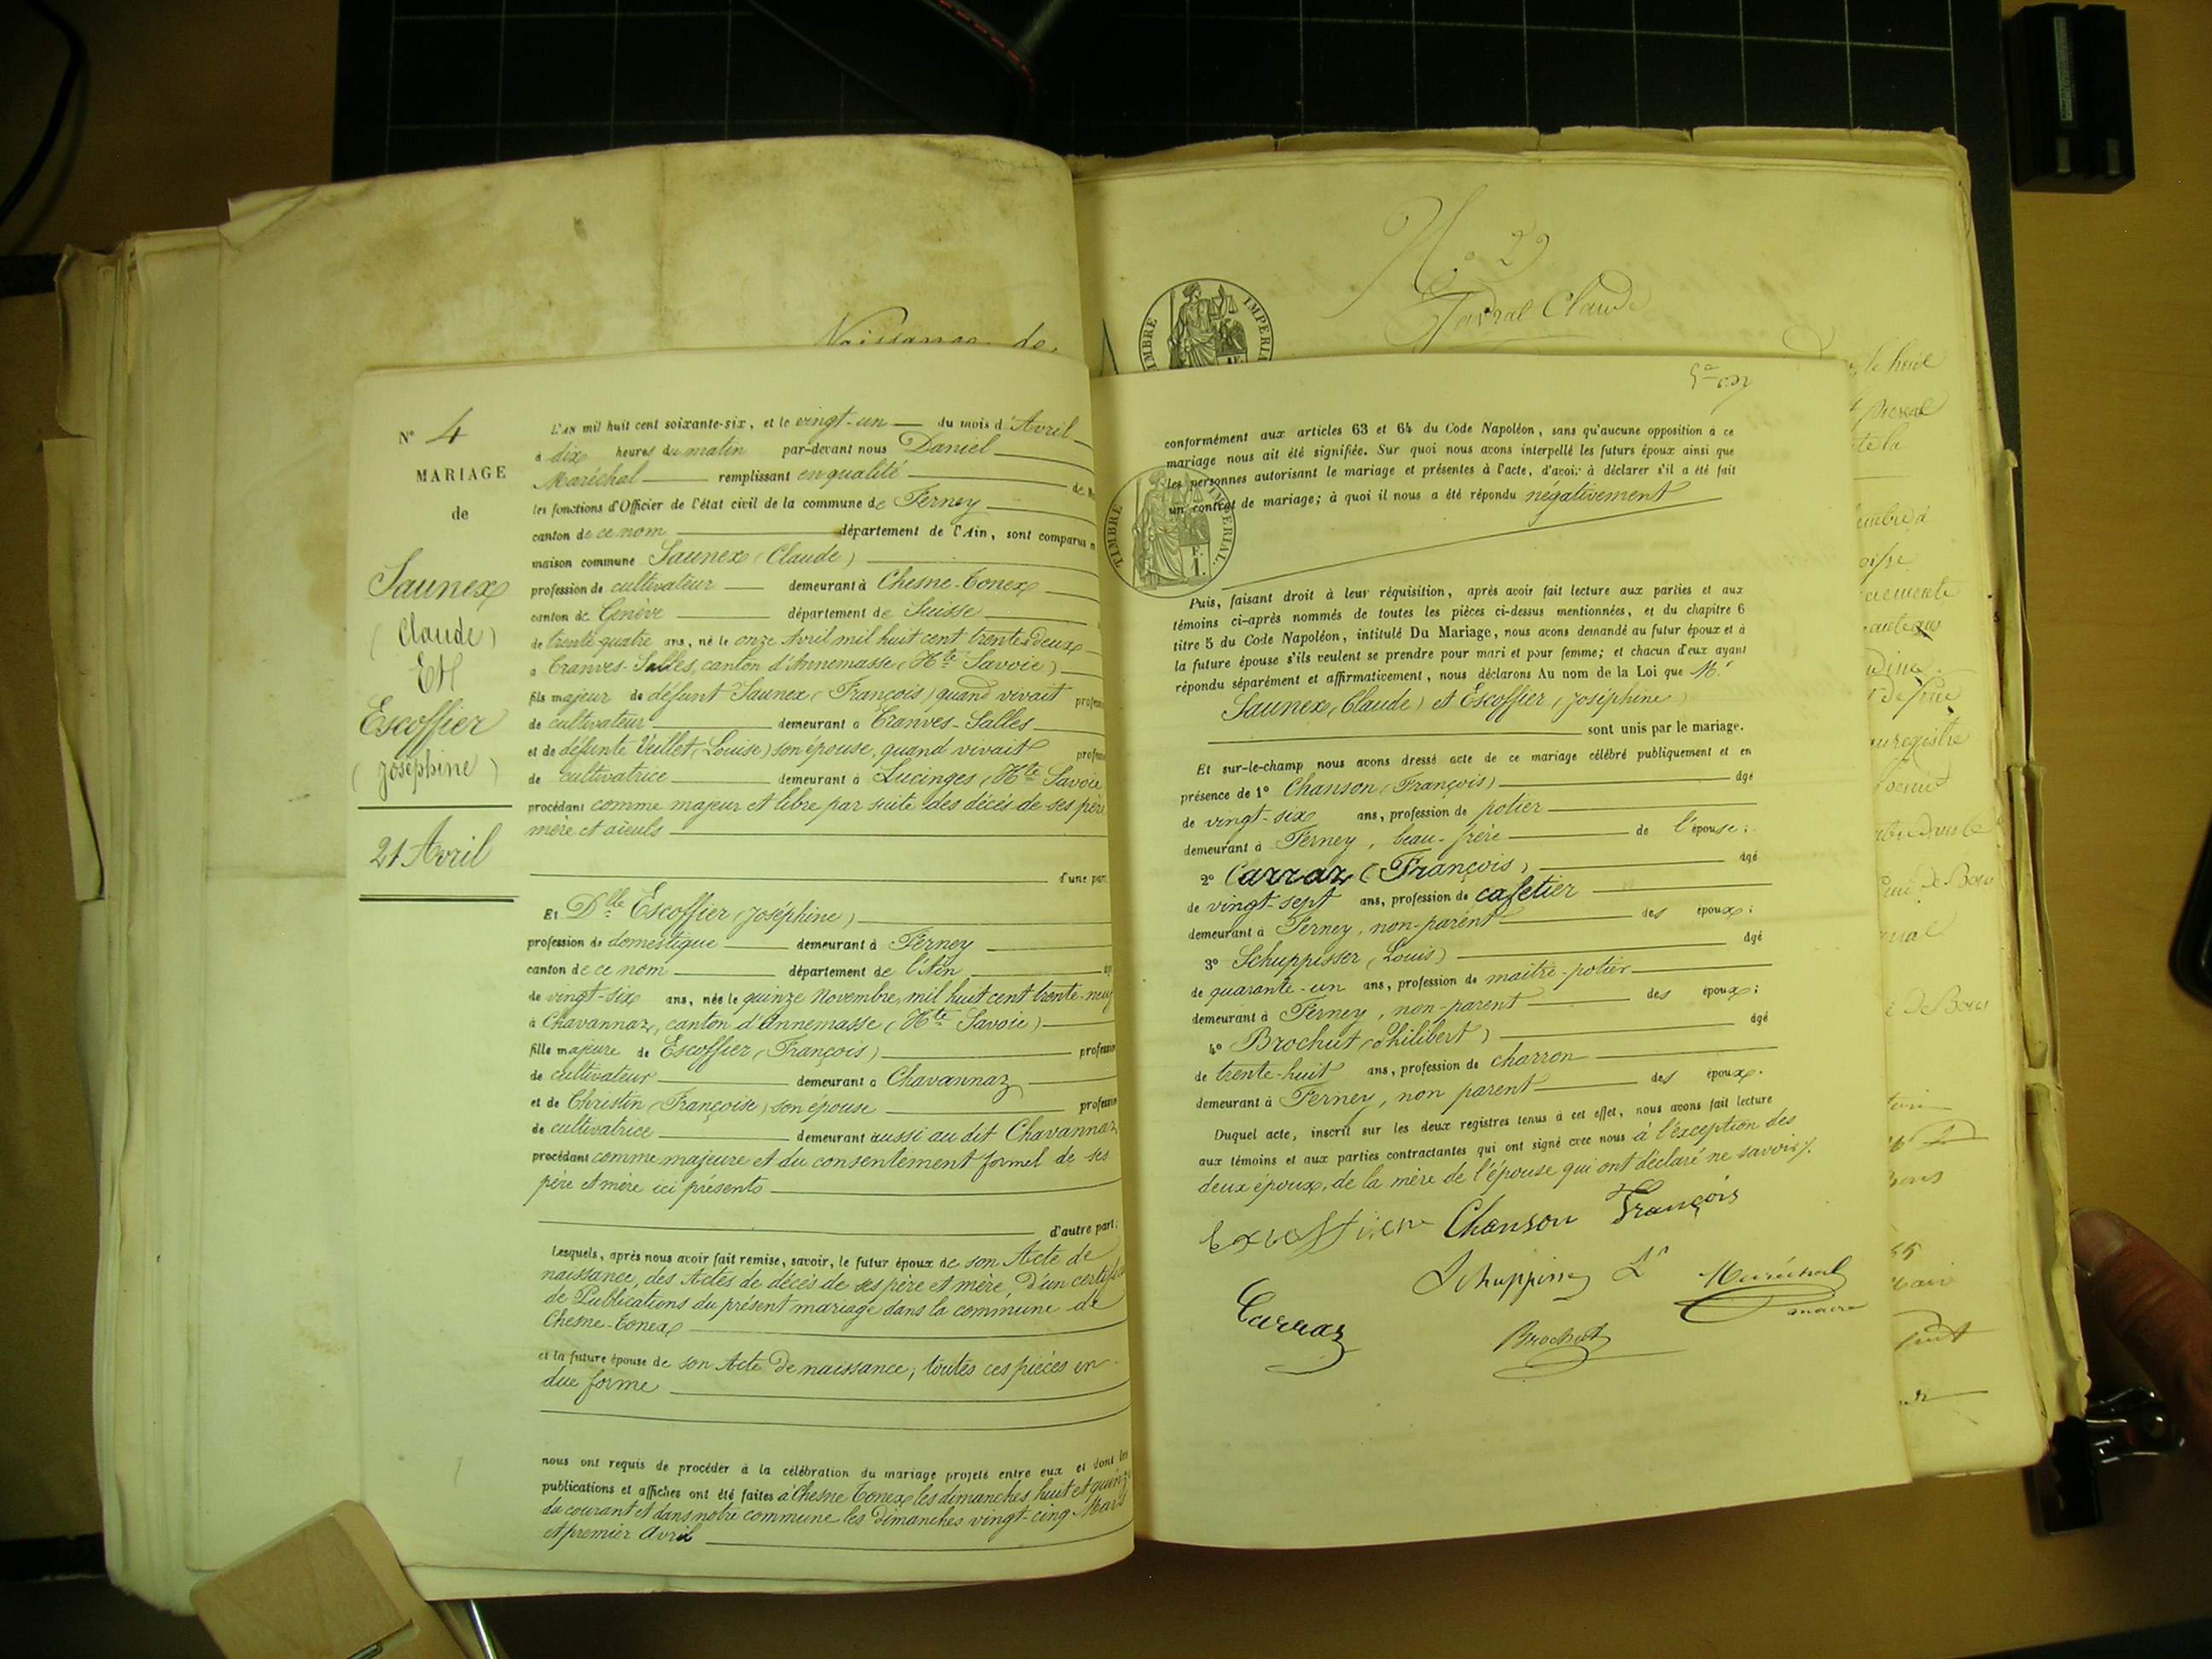 Naissance de
N° 4
MARIAGE
de
Saunex
(Claude)
Et
Escoffier
(Joséphine)
21 Avril
L'AN mil huit cent soixante-six, et le vingt-un du mois d'Avril
à dix heures du matin par-devant nous Daniel
Maréchal remplissant en qualité de
les fonctions d'Officier de l'état civil de la commune de Ferney
canton de ce nom département de l'Ain, sont comparus
maison commune Saunex (Claude)
profession de cultivateur demeurant à Chesne-Tonex
canton de Genève département de Suisse
de trente quatre ans, né le onze Avril mil huit cent trente-deux
à Cranves-Salles, canton d'Annemasse (Hte Savoie)
fils majeur de défunt Saunex (François) quand vivait
de cultivateur demeurant à Cranves-Salles
et de défunte Vuillet (Louise) son épouse, quand vivait
de cultivatrice demeurant à Lucinges (Hte Savoie
procédant comme majeur et libre par suite des décès de ses père
mère et aïeuls
d'une part
Et Dlle Escoffier (Joséphine)
profession de domestique demeurant à Ferney
canton de ce nom département de l'Ain
de vingt-six ans, née le quinze Novembre mil huit cent trente-neuf
à Chavannaz, canton d'Annemasse (Hte Savoie)
fille majeure de Escoffier (François)
de cultivateur demeurant à Chavannaz
et de Christin (Françoise) son épouse
de cultivatrice demeurant aussi au dit Chavannaz
procédant comme majeure et du consentement formel de ses
père et mère ici présents
d'autre part;
Lesquels, après nous avoir fait remise, savoir, le futur époux de son Acte de
naissance, des Actes de décès de ses père et mère, d'un certificat
de Publications du présent mariage dans la commune de
Chesne-Tonex
et la future épouse de son Acte de naissance; toutes ces pièces en
due forme
nous ont requis de procéder à la célébration du mariage projeté entre eux et dont les
publications et affiches ont été faites à Chesne Tonex les dimanches huit et quinze
du courant et dans notre commune les dimanches vingt-cinq Mars
et premier Avril
N° 29
Claude
TIMBRE IMPERIAL
conformément aux articles 63 et 64 du Code Napoléon, sans qu'aucune opposition à ce
mariage nous ait été signifiée. Sur quoi nous avons interpellé les futurs époux ainsi que
les personnes autorisant le mariage et présentes à l'acte, d'avoir à déclarer s'il a été fait
un contrat de mariage; à quoi il nous a été répondu négativement
TIMBRE IMPERIAL.
Puis, faisant droit à leur réquisition, après avoir fait lecture aux parties et aux
témoins ci-après nommés de toutes les pièces ci-dessus mentionnées, et du chapitre 6
titre 5 du Code Napoléon, intitulé Du Mariage, nous avons demandé au futur époux et à
la future épouse s'ils veulent se prendre pour mari et pour femme; et chacun d'eux ayant
répondu séparément et affirmativement, nous déclarons Au nom de la Loi que Mr
Saunex (Claude) et Escoffier (Joséphine)
sont unis par le mariage.
Et sur-le-champ nous avons dressé acte de ce mariage célébré publiquement et en
présence de 1° Chanson (François) âgé
de vingt-six ans, profession de potier
demeurant à Ferney, beau-frère de l'épouse;
2° Carraz (François) âgé
de vingt-sept ans, profession de cafetier
demeurant à Ferney, non-parent des époux;
3° Schuppisser (Louis) âgé
de quarante-un ans, profession de maître-potier
demeurant à Ferney, non-parent des époux;
4° Brochut (Philibert) âgé
de trente-huit ans, profession de charron
demeurant à Ferney, non parent des époux.
Duquel acte, inscrit sur les deux registres tenus à cet effet, nous avons fait lecture
aux témoins et aux parties contractantes qui ont signé avec nous à l'exception des
deux époux, de la mère de l'épouse qui ont déclaré ne savoir.
Chanson François
Maréchal
maire
Carraz
Brochut